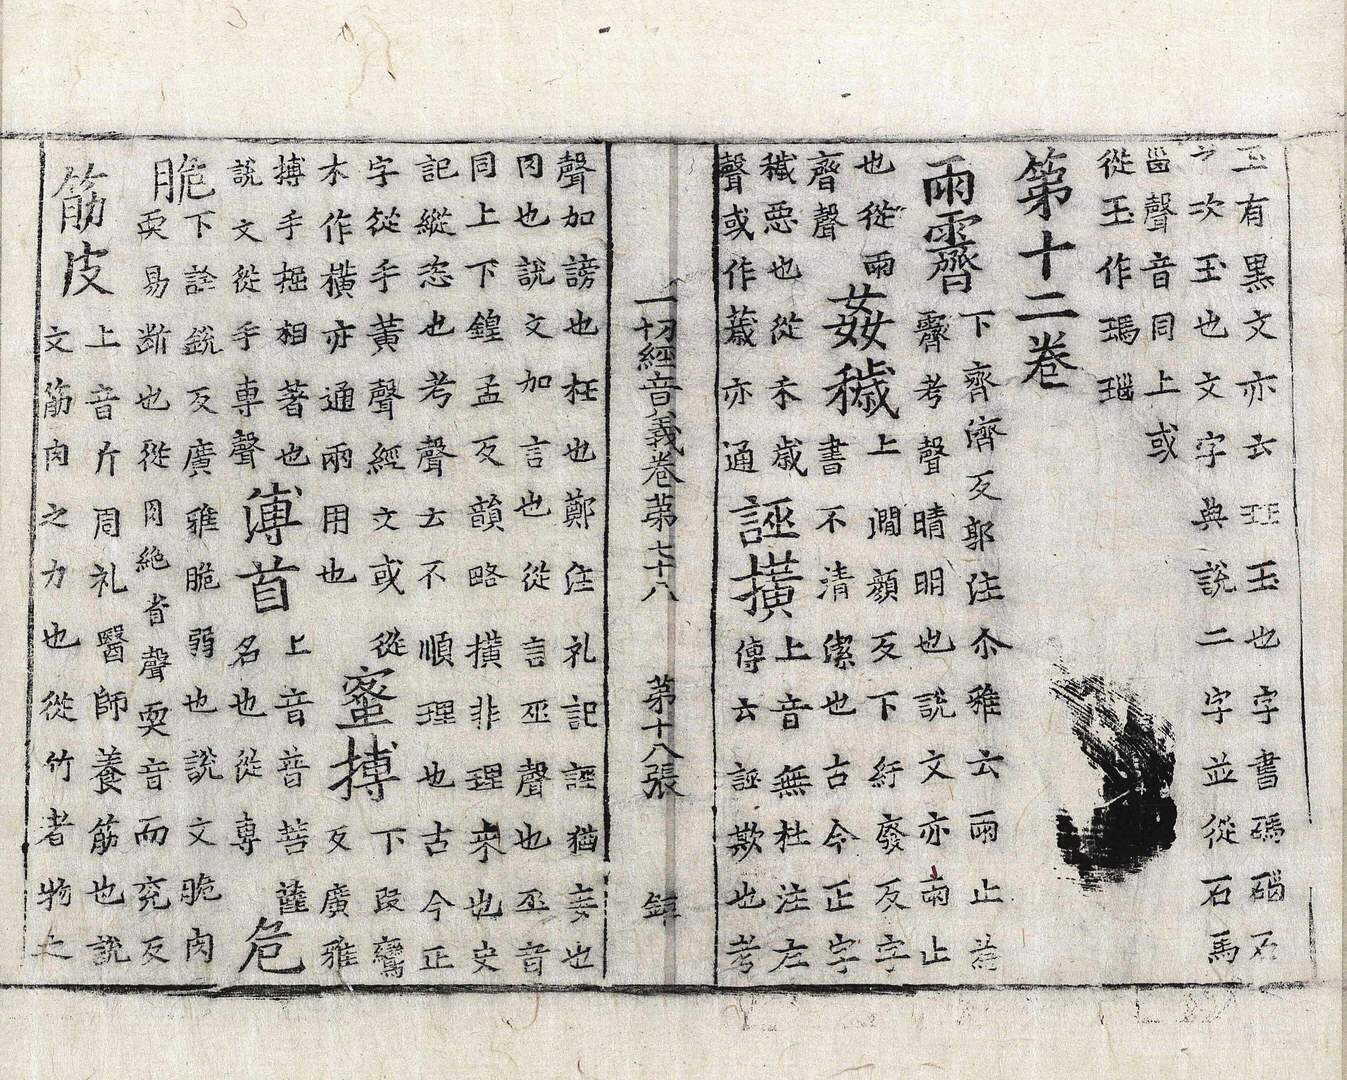 玉有黑文亦云玉也字書碼碯石
次玉也文字典說二字並從石馬
𡿺聲音同上或
從玉作瑪瑙
第十二卷
雨霽
下齊濟反郭注尒雅云雨止為
霽考聲晴明也說文亦雨止
也從雨
齊聲
姦穢
上澗顏反下紆廢反字
書不清潔也古今正字
穢惡也從禾歲
聲或作薉亦通
誣撗
上音無杜注左
傳云誣欺也考
一切經音義卷第七十八 第十八張
聲加謗也枉也鄭注礼記誣猶妄也
肉也說文加言也從言巫聲也巫音
同上下鍠孟反韻略撗非理來也史
記縱恣也考聲云不順理也古今正
字從手黃聲經文或從
木作橫亦通兩用也
蜜摶
下段鸞
反廣雅
摶手握相著也
說文從手專聲
傅首
上音普菩薩
名也從尃
危
脆
下詮銳反廣雅脆弱也說文脆肉
耎易斷也從肉絕省聲耎音而兖反
筋皮
上音斤周礼醫師養筋也說
文筋肉之力也從竹者物之